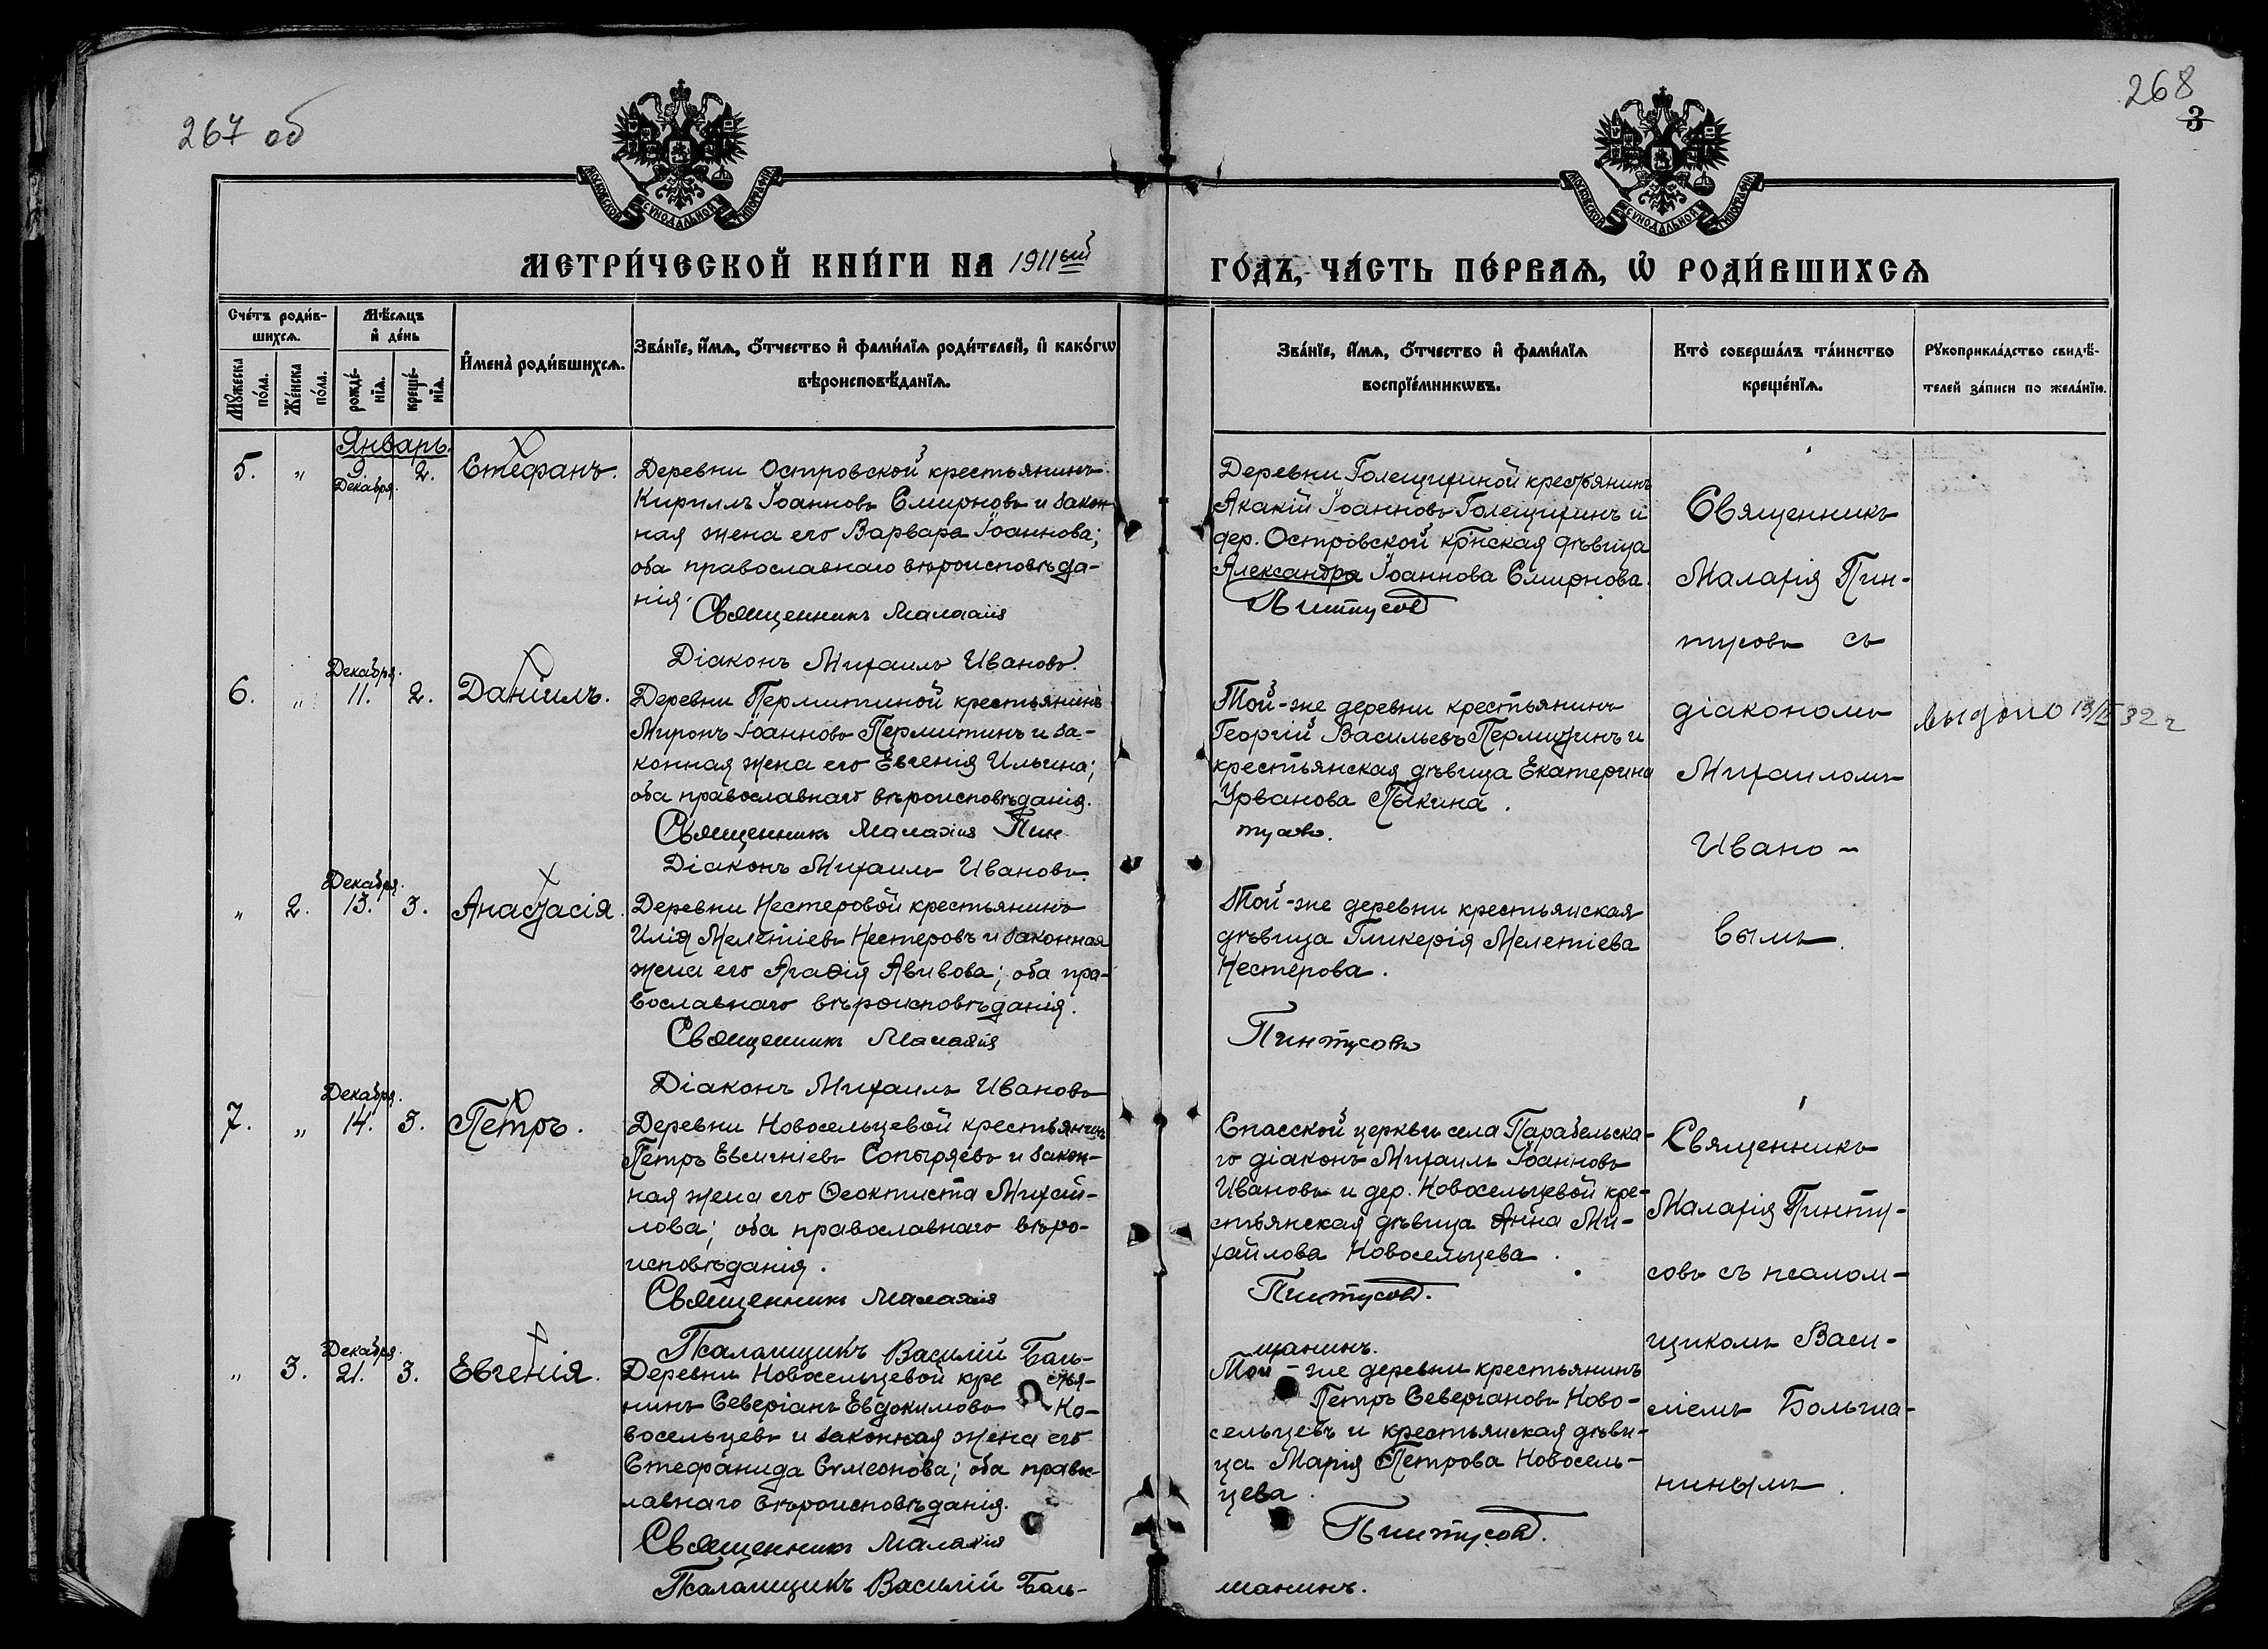 267 об
268
3
МОСКОВСКОЙ СѴНОДАЛЬНОЙ ТИПОГРАФІИ
МОСКОВСКОЙ СѴНОДАЛЬНОЙ ТИПОГРАФІИ
МЕТРИ́ЧЕСКОЙ КНИ́ГИ НА 1911ый
ГО́ДЪ, ЧА́СТЬ ПЕ́РВАѦ, Ѽ РОДИ́ВШИХСѦ
Сче́тъ роди́в-
шихсѧ.
Мꙋ́жеска по́ла.
Же́нска по́ла.
Мѣ́сѧцъ
и҆ де́нь
рожде́-нїѧ.
креще́-нїѧ.
И҆мена̀ роди́вшихсѧ.
Зва́нїе, и҆́мѧ, ѻ҆́тчество и҆ фами́лїѧ роди́телей, и҆ како́гѡ
вѣроисповѣ́данїѧ.
Зва́нїе, и҆́мѧ, ѻ҆́тчество и҆ фами́лїѧ
воспрїе́мникѡвъ.
Кто̀ соверша́лъ та́инство
креще́нїѧ.
Рꙋкоприкла́дство свидѣ́-
телей за́писи по жела́нїю.
Январь.
5. „ 9 Декабря. 2. Стефанъ.
Деревни Островской крестьянинъ
Кириллъ Іоанновъ Смирновъ и закон-
ная жена его Варвара Іоаннова;
оба православнаго вѣроисповѣда-
нія.
Священникъ Малахія
Діаконъ Михаилъ Ивановъ.
Деревни Голещихиной крестьянинъ
Акакій Іоанновъ Голещихинъ и
дер. Островской кр'нская дѣвица
Александра Іоаннова Смирнова.
Пинтусов
Священникъ
Малахія Пин-
тусовъ съ
діакономъ
Михаиломъ
Ивано-
вымъ.
Декабря.
6. „ 11. 2. Даніилъ.
Деревни Пермитиной крестьянинъ
Миронъ Іоанновъ Пермитинъ и за-
конная жена его Евгенія Ильина;
оба православнаго вѣроисповѣданія.
Священникъ Малахія Пин
Діаконъ Михаилъ Ивановъ.
Той-же деревни крестьянинъ
Георгій Васильевъ Пермитинъ и
крестьянская дѣвица Екатерина
Урванова Пыкина.
тусовъ.
выдано 32 г
Декабря.
„ 2. 13. 3. Анастасія.
Деревни Нестеровой крестьянинъ
Илія Мелетіевъ Нестеровъ и законная
жена его Агафія Авивова; оба пра-
вославнаго вѣроисповѣданія.
Священникъ Малахія
Діаконъ Михаилъ Ивановъ
Той-же деревни крестьянская
дѣвица Гликерія Мелетіева
Нестерова.
Пинтусовъ
Декабря.
7. „ 14. 3. Петръ.
Деревни Новосельцевой крестьянинъ
Петръ Евсигніевъ Сопыряевъ и закон-
ная жена его Ѳеоктиста Михай-
лова; оба православнаго вѣро-
исповѣданія.
Священникъ Малахія
Псаломщикъ Василій Боль-
Спасской церкви села Парабельска-
го діаконъ Михаилъ Іоанновъ
Ивановъ и дер. Новосельцевой кре-
стьянская дѣвица Анна Ми-
хайлова Новосельцева.
Пинтусов.
шанинъ.
Священникъ
Малахія Пинту-
совъ съ псалом-
щикомъ Васи-
ліемъ Больша-
нинымъ.
Декабря.
„ 3. 21. 3. Евгенія.
Деревни Новосельцевой кре стья-
нинъ Северіанъ Евдокимовъ Но-
восельцевъ и законная жена его
Стефанида Сѵмеонова; оба право-
лавнаго вѣроисповѣданія.
Священникъ Малахія
Псаломщикъ Василій Боль-
Той-же деревни крестьянинъ
Петръ Северіановъ Ново-
сельцевъ и крестьянская дѣви-
ца Марія Петрова Новосель-
цева.
Пинтусов.
шанинъ.